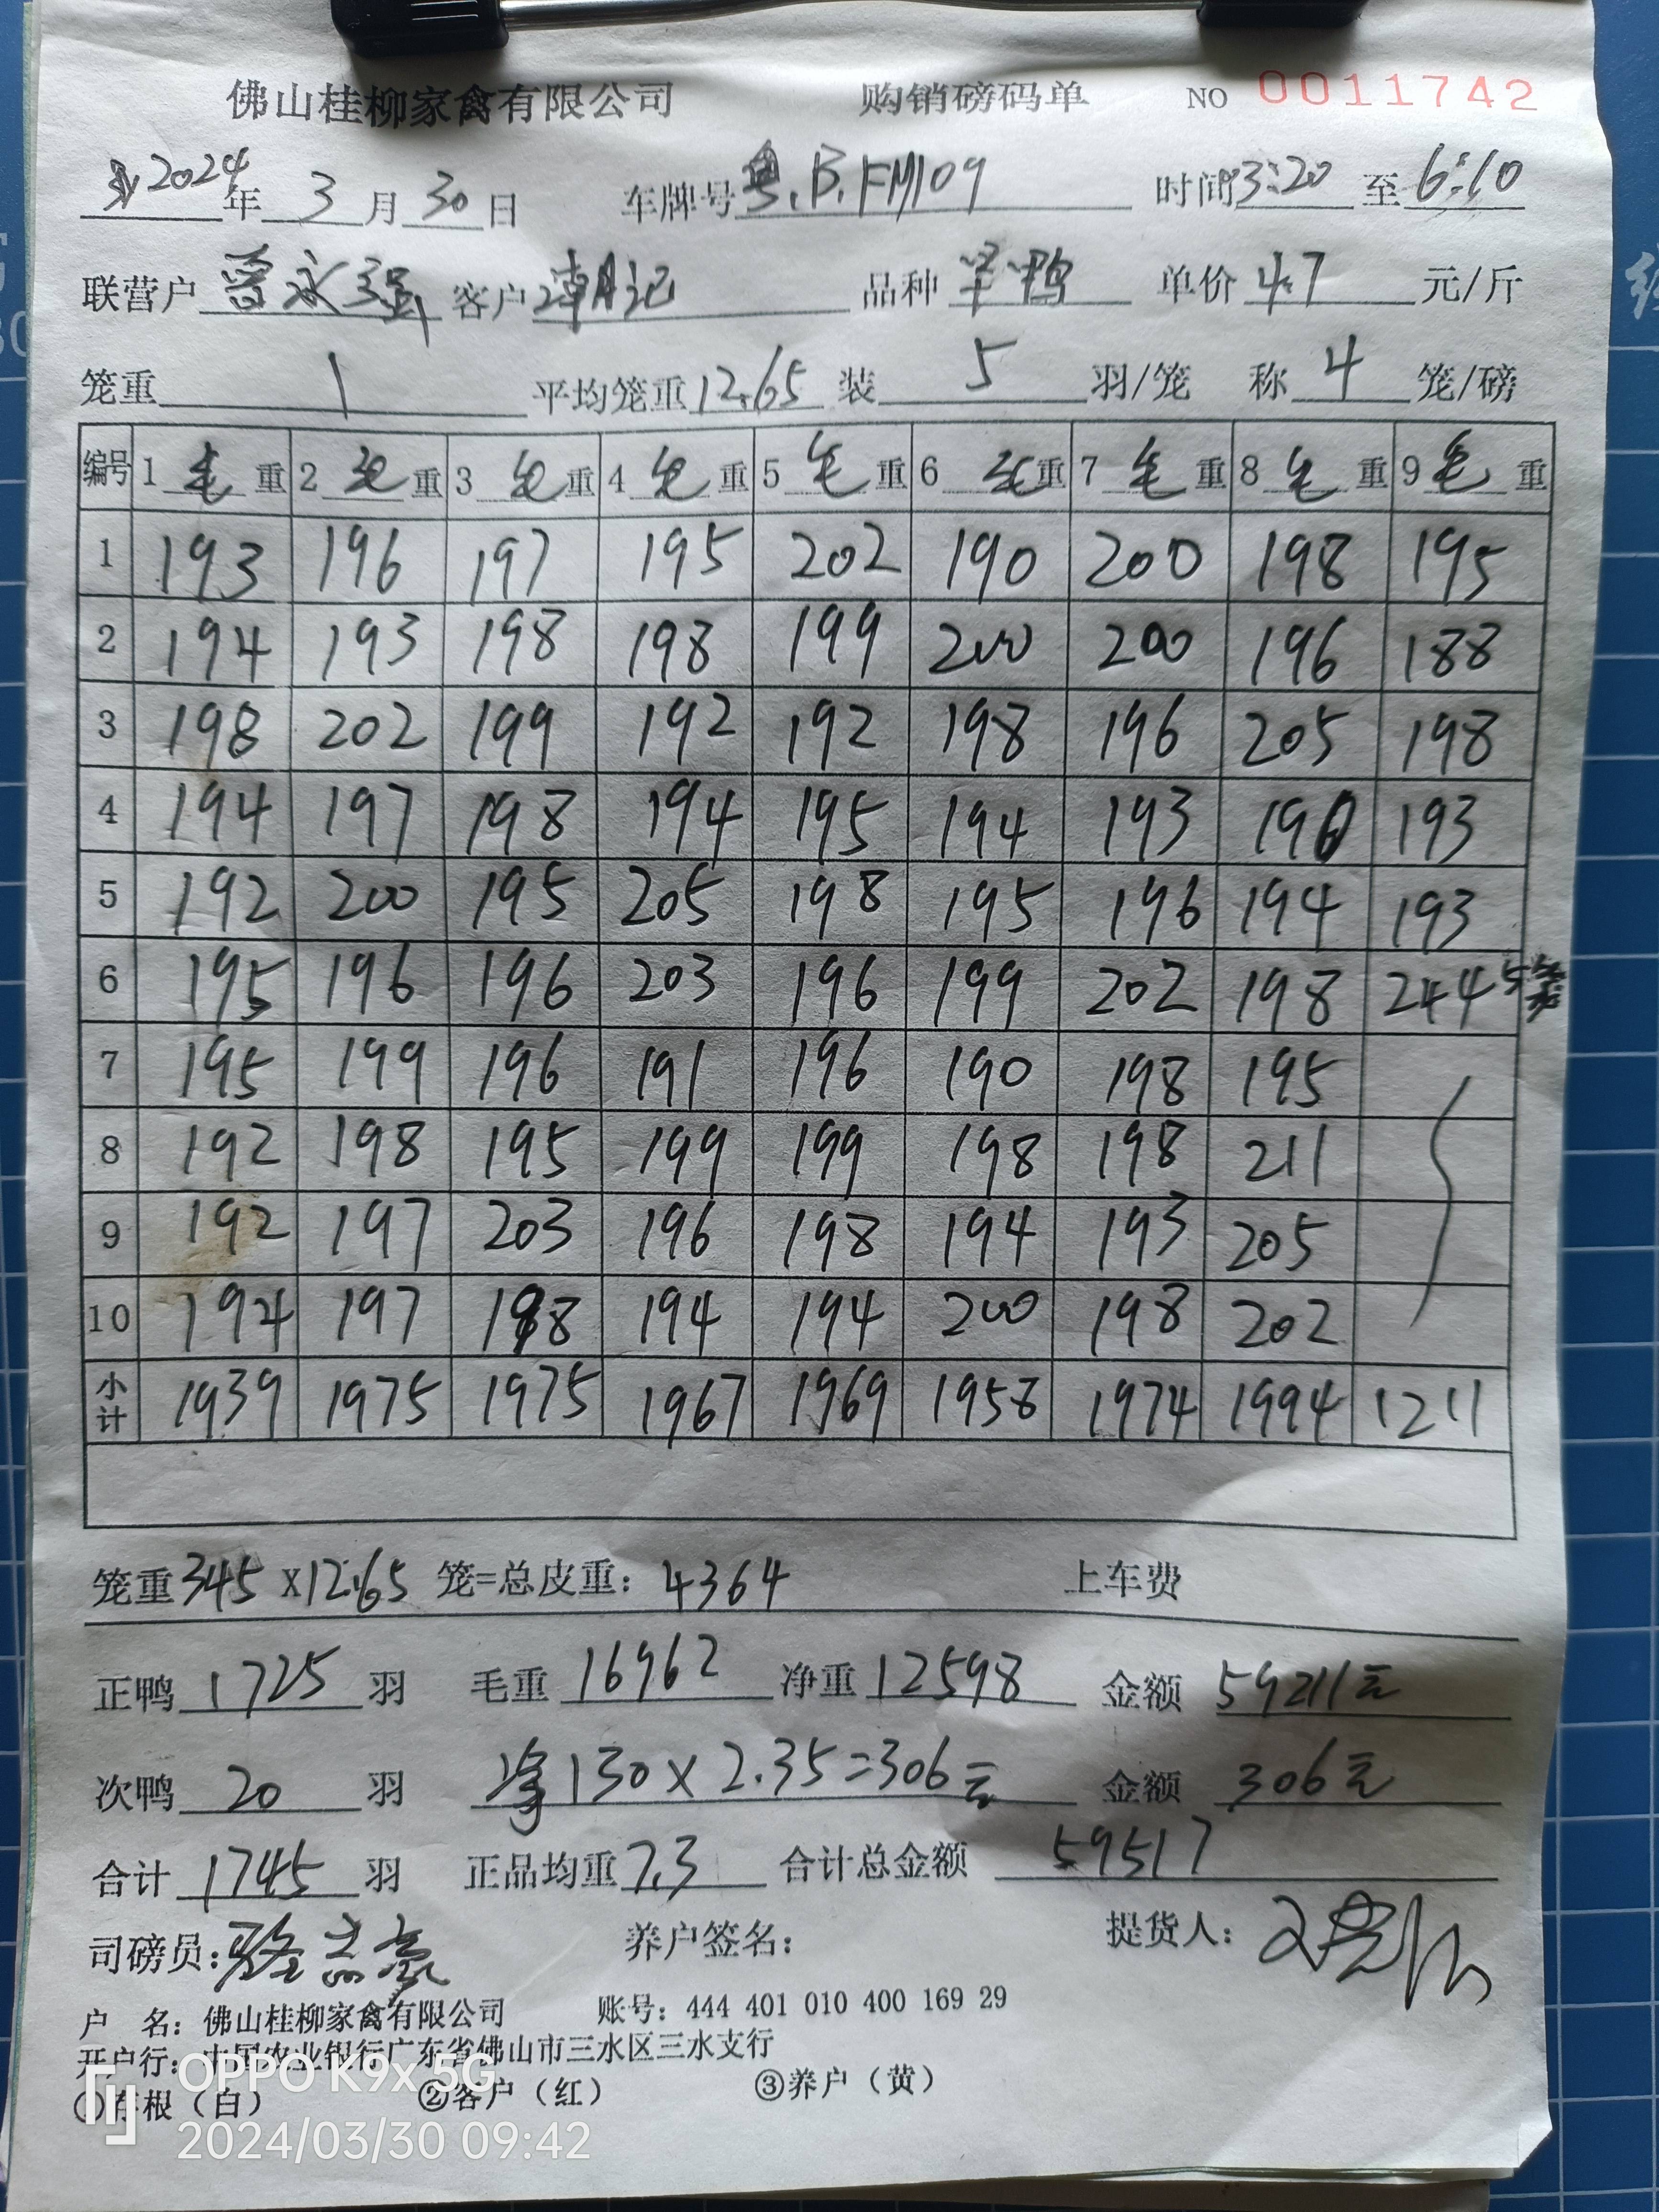 佛山桂柳家禽有限公司 购销磅码单 NO 0011742
2024年3月30日 车牌号粤.B.FM109 时间3:20至6:10
联营户曾永强 客户 记 品种 鸭 单价4.7元/斤
笼重1 平均笼重12.65 装5羽/笼 称4笼/磅
编号 1毛重 2毛重 3毛重 4毛重 5毛重 6毛重 7毛重 8毛重 9毛重
1 193 196 197 195 202 190 200 198 195
2 194 193 198 198 199 200 200 196 188
3 198 202 199 192 192 198 196 205 198
4 194 197 198 194 195 194 193 190 193
5 192 200 195 205 198 195 196 194 193
6 195 196 196 203 196 199 202 198 244 5笼
7 195 199 196 191 196 190 198 195
8 192 198 195 199 199 198 198 211
9 192 197 203 196 198 194 193 205
10 194 197 198 194 194 200 198 202
小计 1939 1975 1975 1967 1969 1958 1974 1994 1211
笼重345X12.65笼=总皮重：4364 上车费
正鸭1725羽 毛重16962 净重12598 金额59211元
次鸭20羽 130×2.35=306元 金额306元
合计1745羽 正品均重7.3 合计总金额59517
司磅员：骆志豪 养户签名： 提货人：
户 名：佛山桂柳家禽有限公司 账号：444 401 010 400 169 29
开户行：中国农业银行广东省佛山市三水区三水支行
①存根（白） ②客户（红） ③养户（黄）
OPPO K9x 5G
2024/03/30 09:42